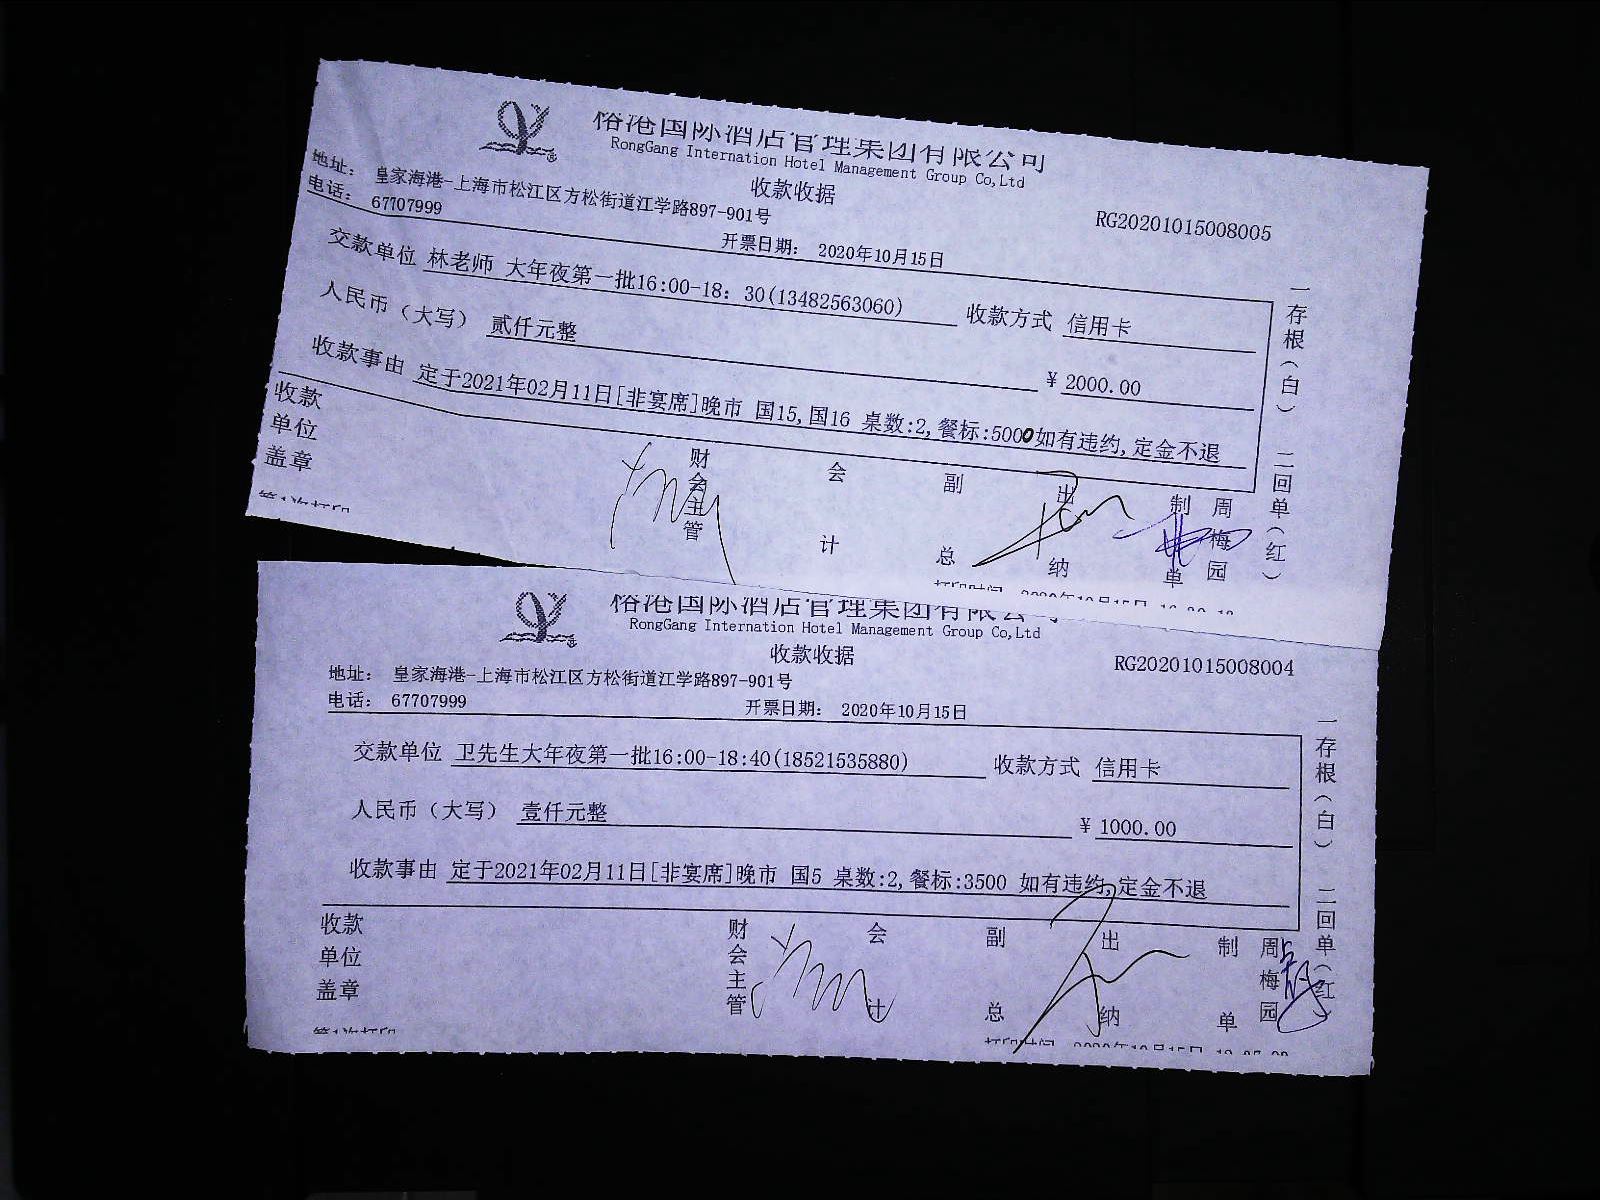 榕港国际酒店管理集团有限公司
RongGang Internation Hotel Management Group Co,Ltd
收款收据
RG20201015008005
地址： 皇家海港-上海市松江区方松街道江学路897-901号
电话： 67707999
开票日期： 2020年10月15日
交款单位 林老师 大年夜第一批16:00-18：30(13482563060) 收款方式 信用卡
人民币（大写） 贰仟元整 ¥ 2000.00
收款事由 定于2021年02月11日[非宴席]晚市 国15,国16 桌数:2,餐标:5000如有违约,定金不退
收款单位盖章
财会主管 会计 副总 出纳 制单 周梅园
一存根（白） 二回单（红）
第1次打印
打印时间 2020年10月15日
榕港国际酒店管理集团有限公司
RongGang Internation Hotel Management Group Co,Ltd
收款收据
RG20201015008004
地址： 皇家海港-上海市松江区方松街道江学路897-901号
电话： 67707999
开票日期： 2020年10月15日
交款单位 卫先生大年夜第一批16:00-18:40(18521535880) 收款方式 信用卡
人民币（大写） 壹仟元整 ¥ 1000.00
收款事由 定于2021年02月11日[非宴席]晚市 国5 桌数:2,餐标:3500 如有违约,定金不退
收款单位盖章
财会主管 会计 副总 出纳 制单 周梅园
一存根（白） 二回单（红）
第1次打印
打印时间 2020年10月15日